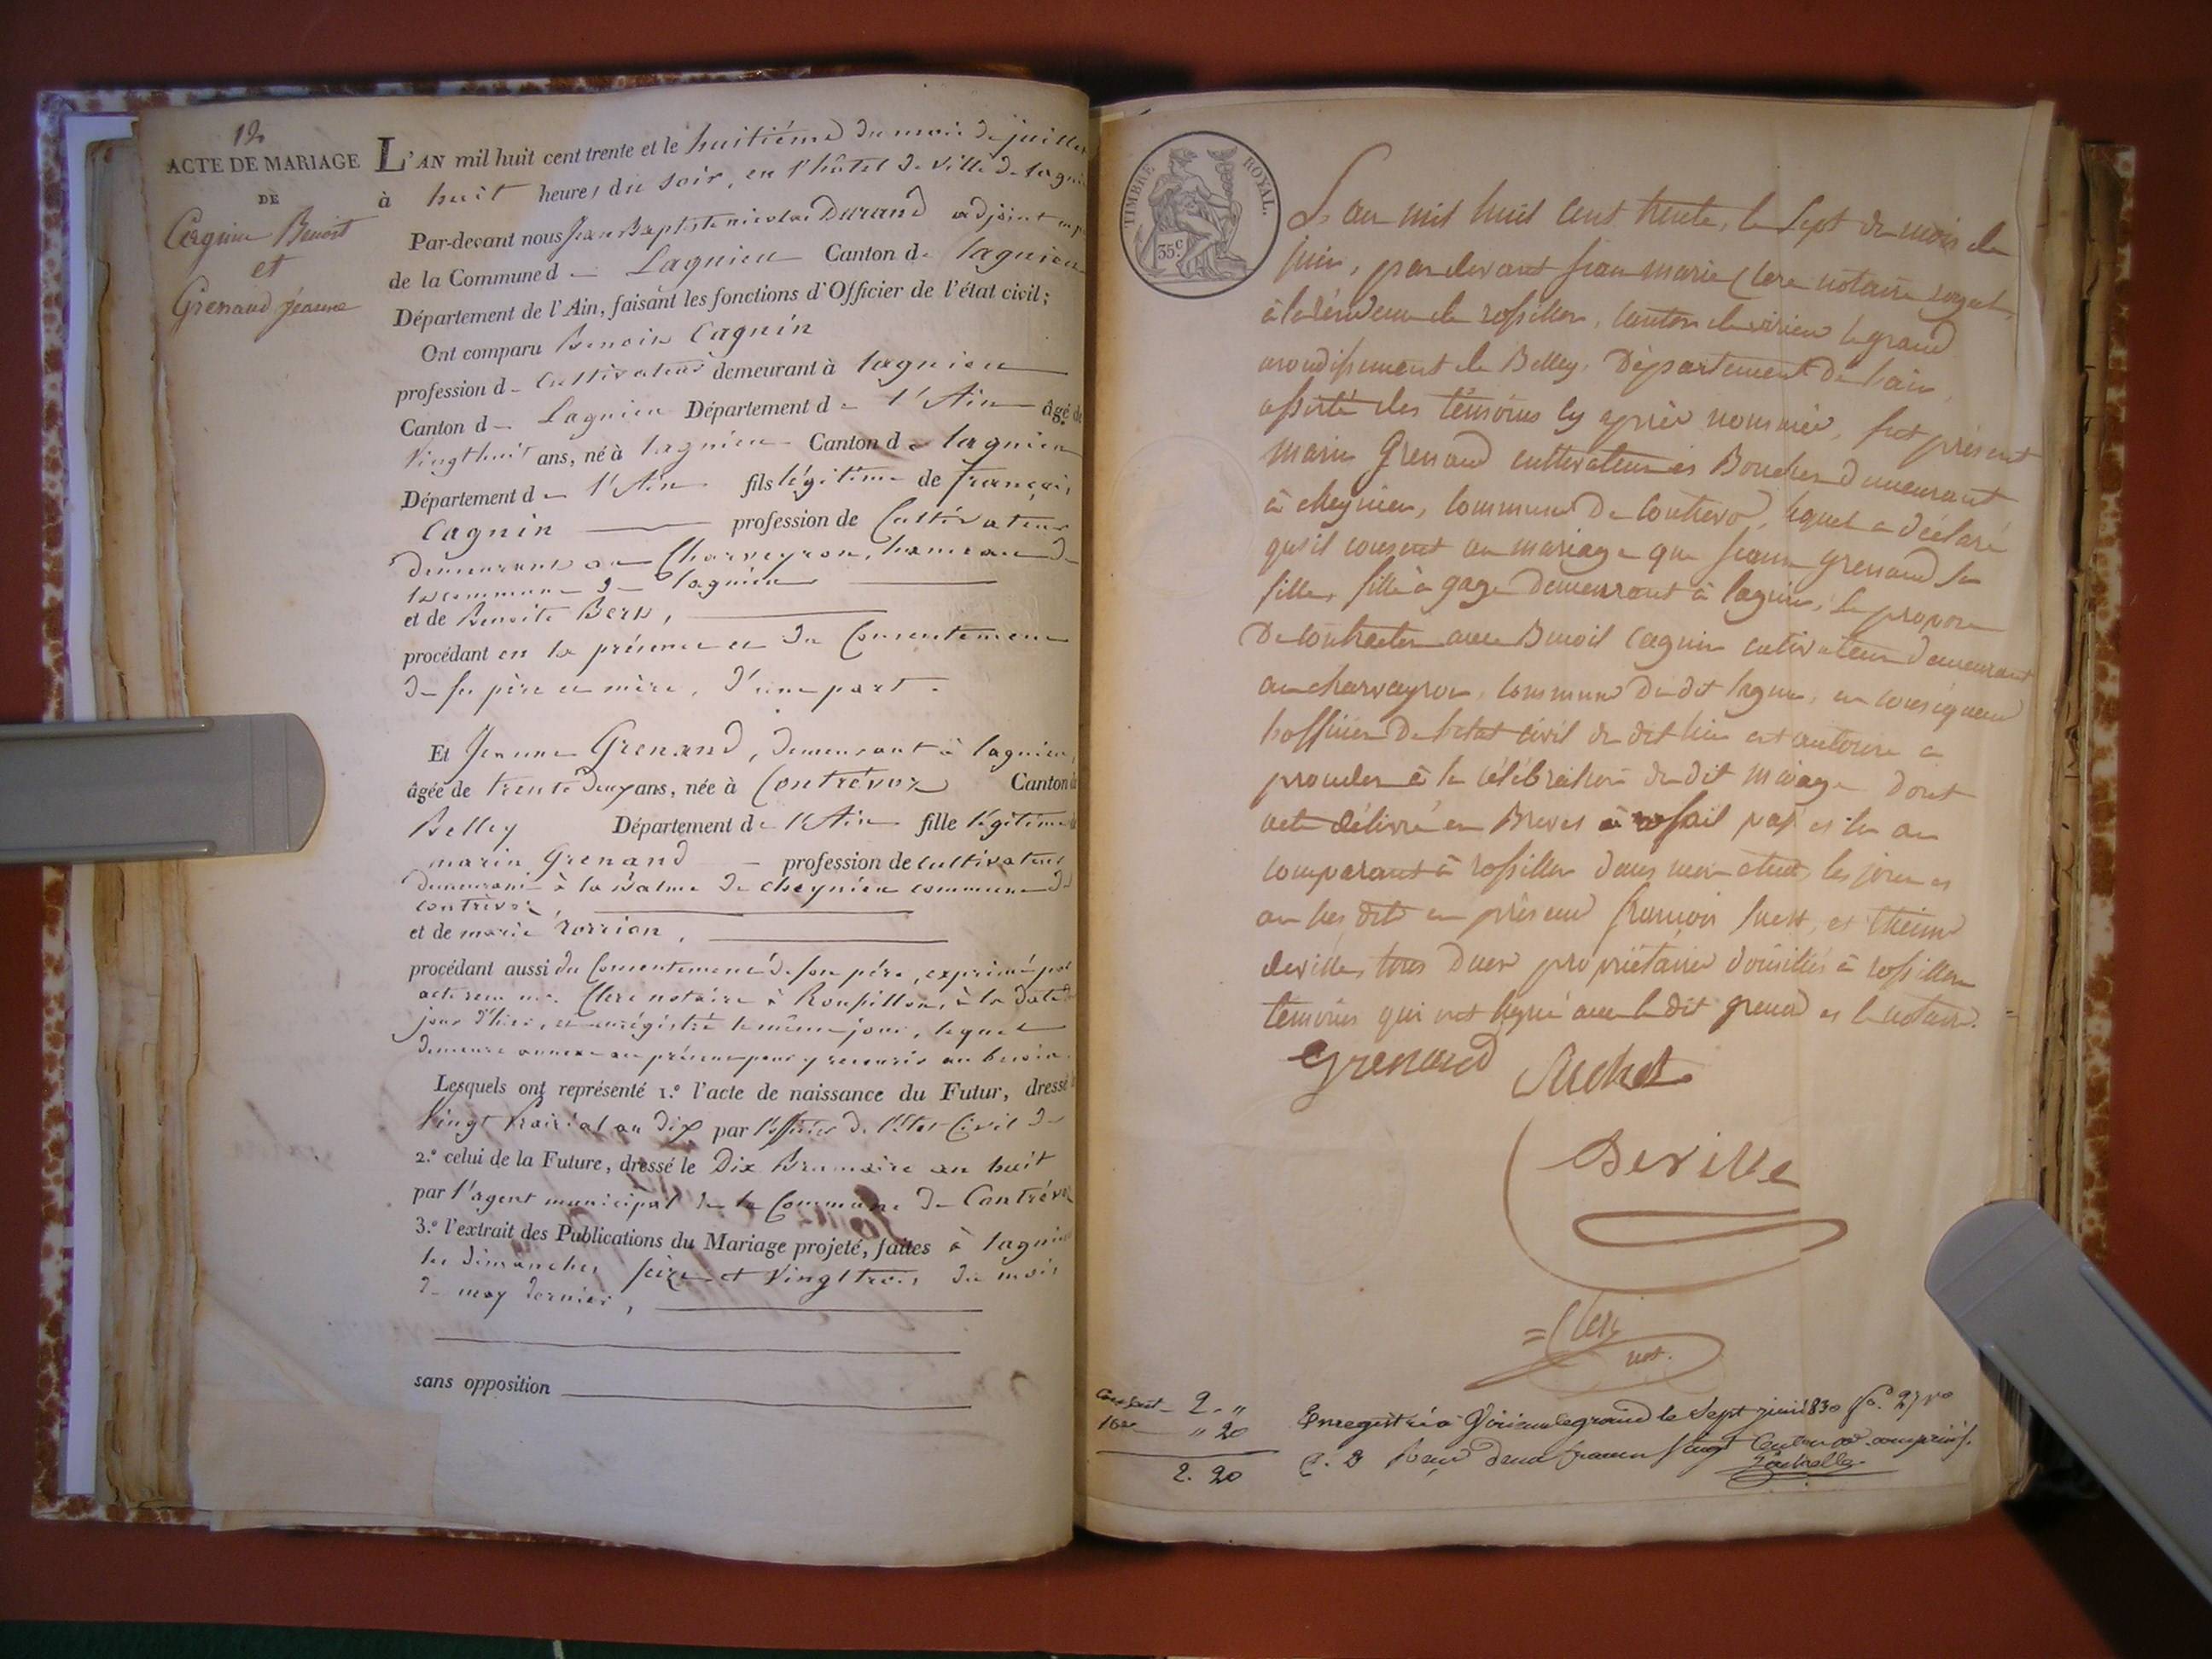 12
ACTE DE MARIAGE
DE
Cagnin Benoit
et
Grenand Jeanne
L'AN mil huit cent trente et le huitième du mois de juillet
à huit heures du soir, en l'hôtel de ville de lagnieu
Par-devant nous Jean Baptiste nicolas Durand adjoint
de la Commune d Lagnieu Canton de lagnieu
Département de l'Ain, faisant les fonctions d'Officier de l'état civil;
Ont comparu Benoit Cagnin
profession de Cultivateur demeurant à lagnieu
Canton de Lagnieu Département de l'Ain âgé de
Vingt huit ans, né à lagnieu Canton de lagnieu
Département de l'Ain fils légitime de françois
Cagnin profession de Cultivateur
demeurant au Charveyron, hameau de
la commune de lagnieu
et de Benoite
procédant en la présence et du Consentement
de ses père et mère, d'une part.
Et Jeanne Grenand, demeurant à lagnieu,
âgée de trente deux ans, née à Contrévoz Canton de
Belley Département de l'Ain fille légitime de
marin Grenand profession de cultivateur
demeurant à la Balme de cheynieu commune de
contrévoz
et de marie
procédant aussi du Consentement de son père, exprimé par
acte reçu me. Clerc notaire à Roussillon, à la date du
jour d'hier, et enrégistré le même jour, lequel
demeure annexé au présent pour y recourir au besoin.
Lesquels ont représenté 1.º l'acte de naissance du Futur, dressé le
Vingt Prairial an dix par l'officier de l'Etat Civil de
2.º celui de la Future, dressé le Dix Brumaire an huit
par l'agent municipal de la Commune de Contrévoz
3.º l'extrait des Publications du Mariage projeté, faites à lagnieu
les dimanches seize et Vingt trois du mois
de may dernier,
sans opposition
TIMBRE ROYAL.
35.c
L'an mil huit cent trente, le sept du mois de
juin, par devant jean marie Clerc notaire royal,
à la résidence de rossillon, canton de virieu le grand
arrondissement de Belley, Département de l'ain,
assisté des témoins cy après nommés, fut présent
marin Grenand cultivateur et Boucher demeurant
à cheynieu, commune de contrevo, lequel a déclaré
qu'il consent au mariage que jeanne grenand sa
fille, fille à gage demeurant à lagnieu, se propose
de contracter avec Benoit Cagnin cultivateur demeurant
au charvayron, commune du dit lagnieu, en conséquence
l'officier de l'etat civil du dit lieu est autorisé a
proceder à la célébration du dit mariage dont
acte délivré en Brevet fait passé et lu au
comparant à rossillon dans mon etude les jour et
an sus dits en présence françois Suchet, et
deville, tous deux propriétaires domiciliés à rossillon
témoins qui ont signé avec le dit grenand et le notaire.
Grenand Suchet
Deville
Clerc
not.
2. "
10e " 20
2. 20
Enregistré à Virieu le grand le sept juin 1830 fo. 27 vo
C. 2 Reçu deux francs vingt Centimes compris